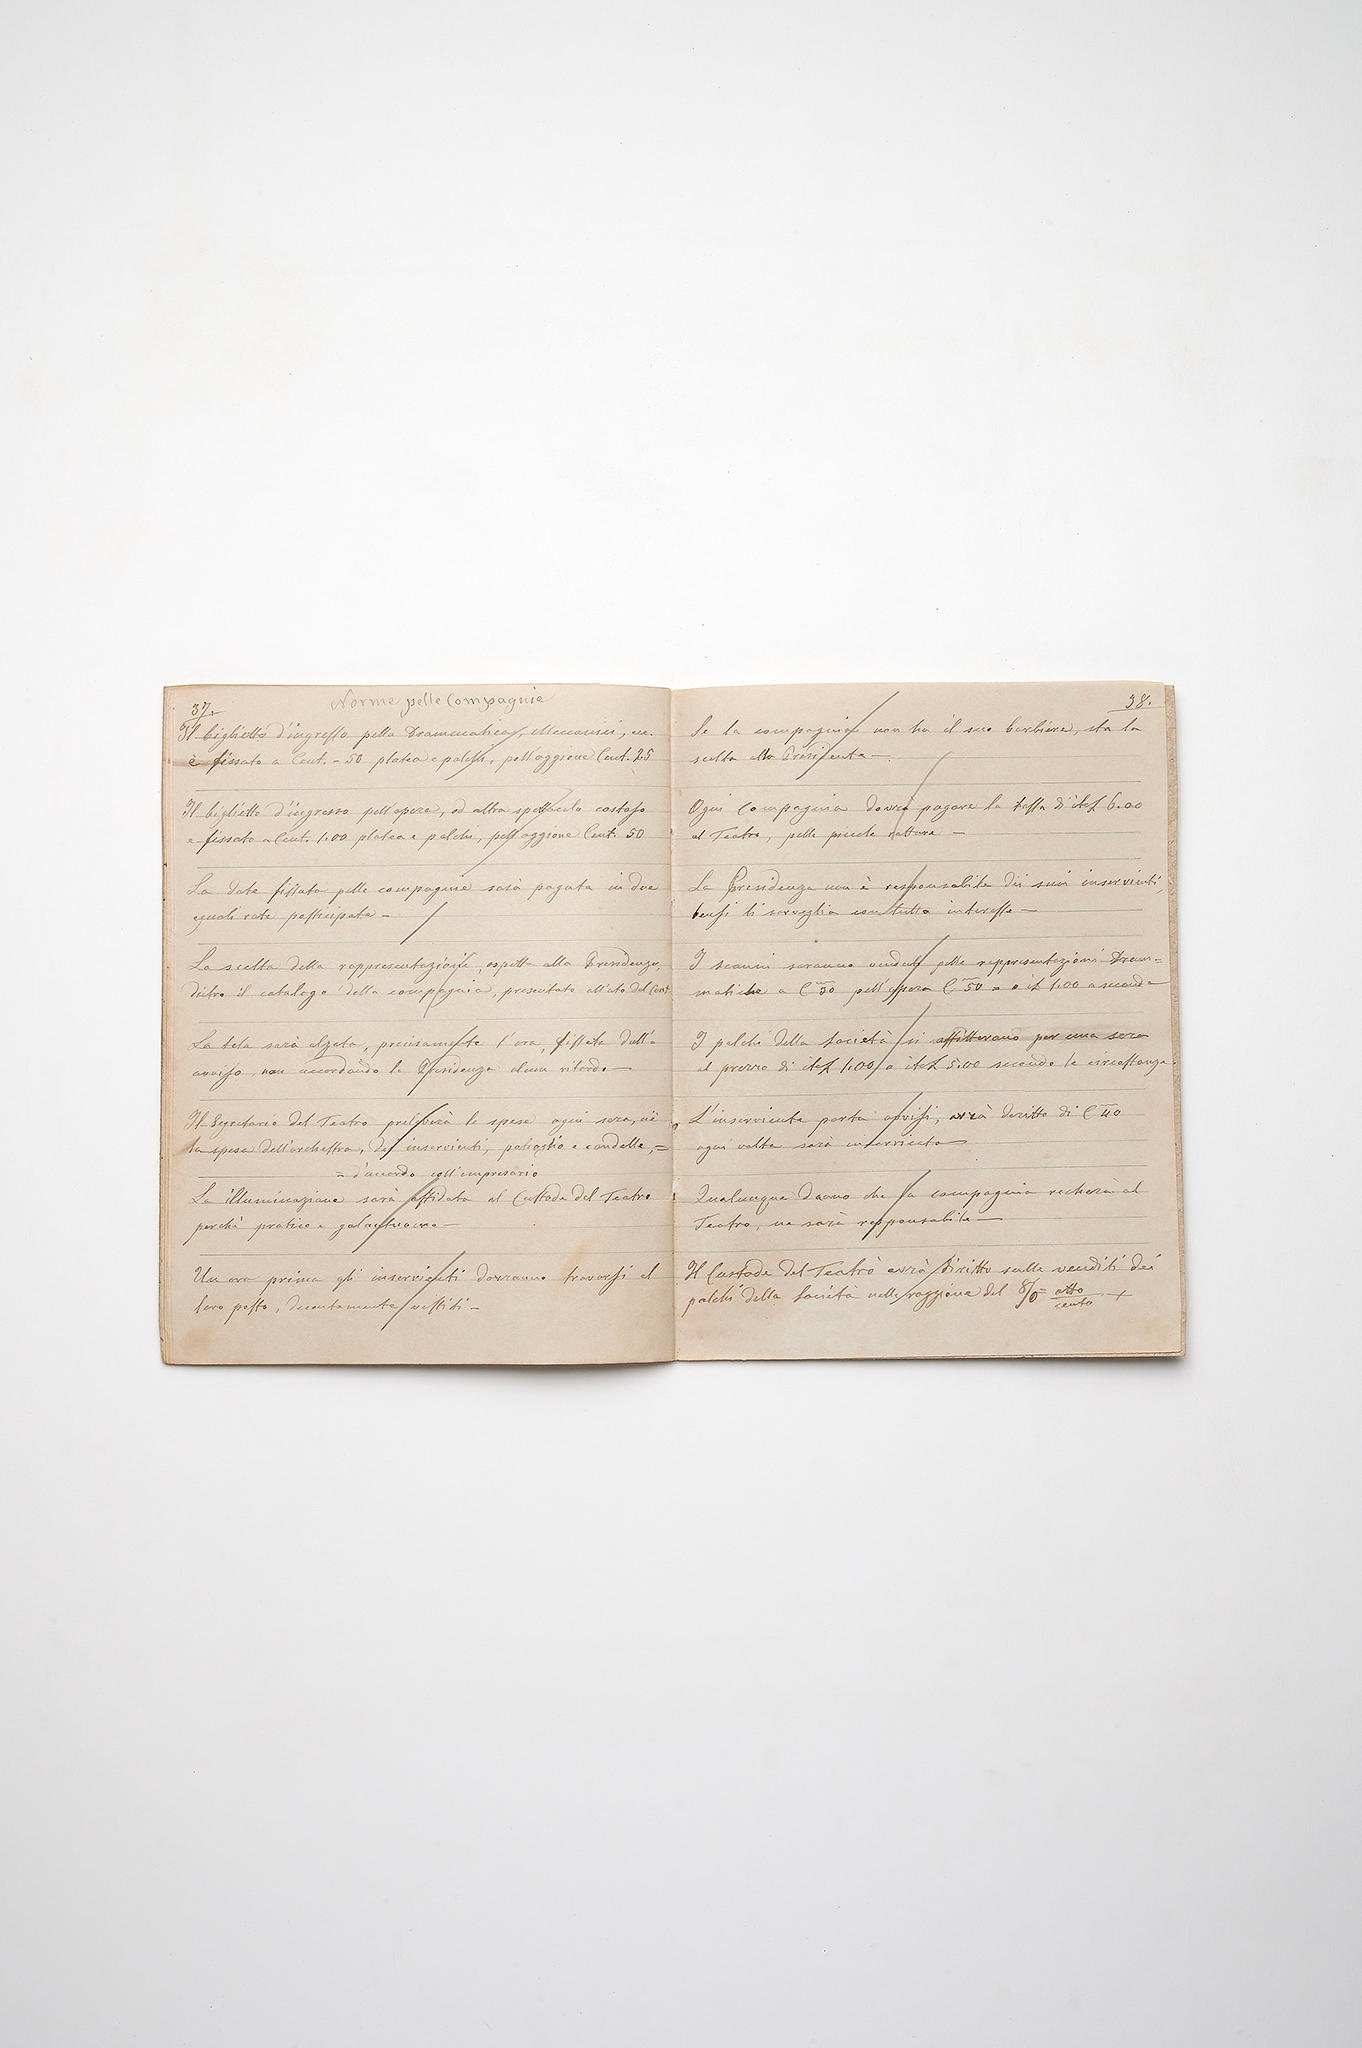 37.
Norme pelle Compagnie
Il biglietto d'ingresso pella Drammatica, Meccanici, ec.
è fissato a Cent. = 50 platea e palchi, pell'oggione Cent. 25
Il biglietto d'ingresso pell'opera, od altro spettacolo costoso
e fissato a Cent. 1.00 platea e palchi, pell'oggione Cent. 50
La dote fissata pelle compagnie sarà pagata in due
eguali rate posticipate =
La scelta della rappresentazione, aspetta alla Presidenza,
dietro il catalogo della compagnia, presentato all'atto del Cont.
La tela sarà alzata, precisamente l'ora, fissata dall'a
avviso, non accordando la Presidenza alcun ritardo —
Il Segretario del Teatro preleverà le spese ogni sera, cioè
la spesa dell'orchestra, dei inservienti, petroglio e candelle, =
= d'accordo coll'impresario
La illuminazione sarà affidata al Custode del Teatro
perchè pratico e galantuomo —
Un ora prima gli inservienti dovranno trovarsi al
loro posto, decentemente vestiti —
38.
Se la compagnia non ha il suo barbiere, sta la
scelta alla Presidenza —
Ogni compagnia dovrà pagare la tassa di it£ 6.00
al Teatro, pelle piccole rotture —
La Presidenza non è responsabile dei suoi inservienti,
bensì li sorveglia con tutto interesse —
I scanni saranno venduti pelle rappresentazioni Dram=
matiche a C.mi 30 pell'opera C.mi 50 = o it 1.00 a seconda
I palchi della Società si affitterano per una sera
al prezzo di it£ 1.00 a it£ 5.00 secondo le circostanze.
L'inserviente porta avvisi, avrà deritto di C.mi 40
ogni volta sarà inserviente
Qualunque danno che la compagnia recherà al
Teatro, ne sarà responsabile —
Il Custode del Teatro avrà diritto sulle venditi dei
palchi della Società nelle raggione del 8/0 = otto
cento +